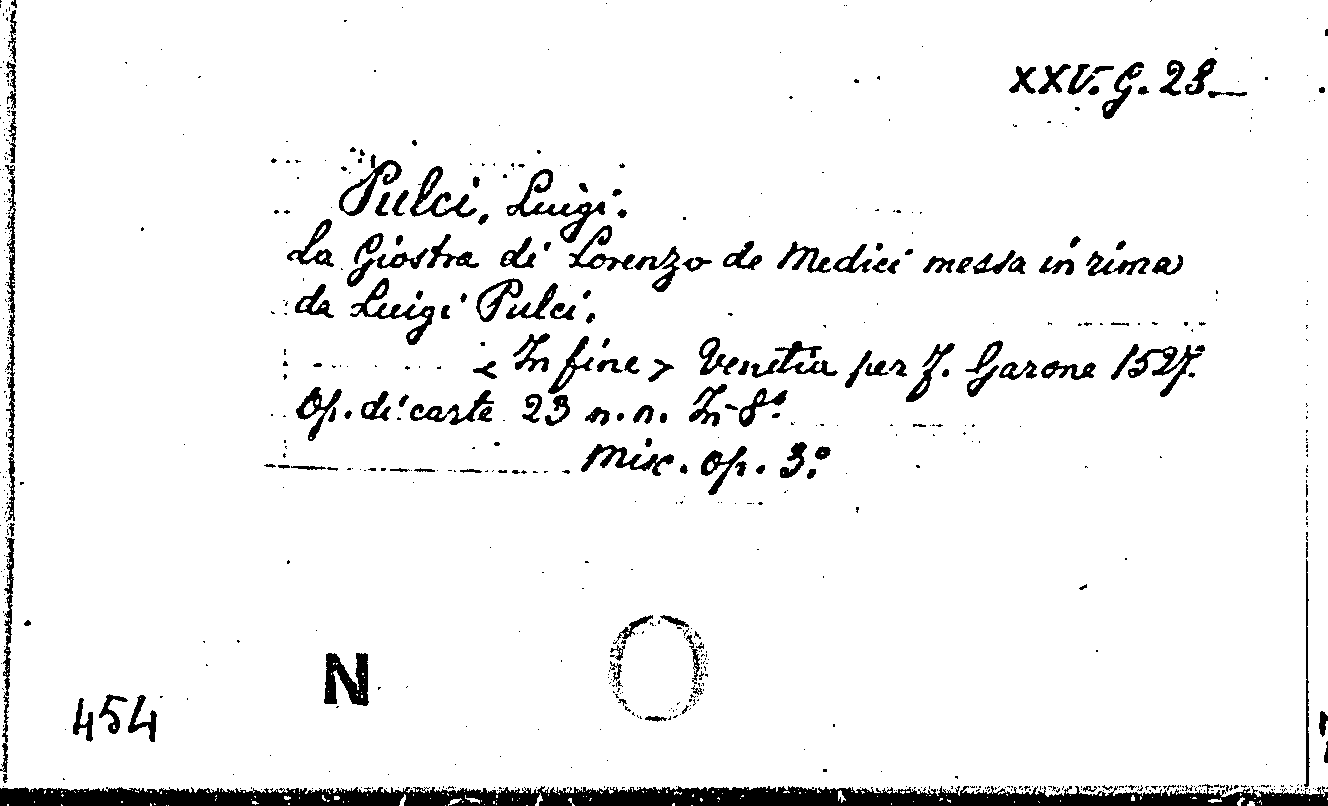 XXV. G. 23
Pulci, Luigi.
La Giostra di Lorenzo de Medici messa in rima
da Luigi Pulci.
< In fine > Venetia per F. Garone 1527.
Op. di carte 23 n. n. In-8º
Misc. Op. 3º
N
454